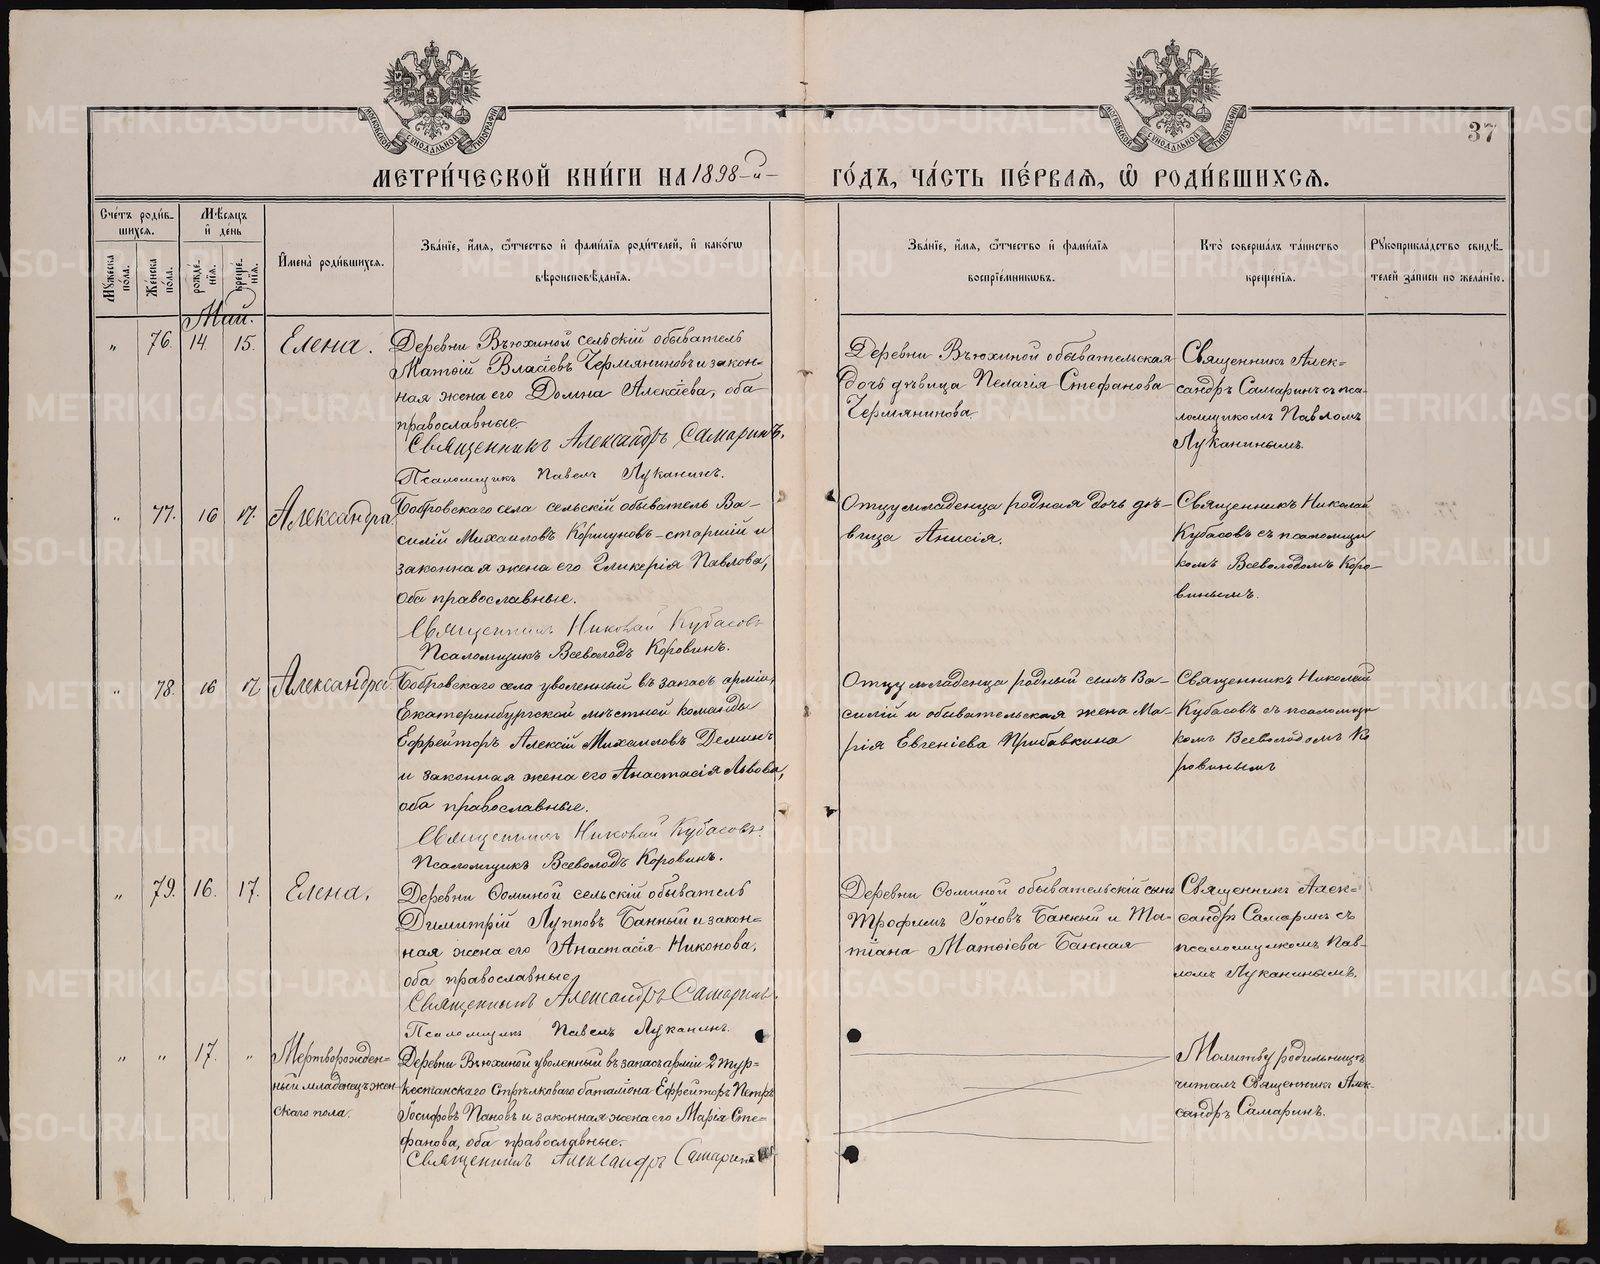 МОСКОВСКОЙ СѴНОДАЛЬНОЙ ТИПОГРАФИИ
МОСКОВСКОЙ СѴНОДАЛЬНОЙ ТИПОГРАФИИ
37
МЕТРИ́ЧЕСКОЙ КНИ́ГИ НА 1898-й- ГО́ДЪ, ЧА́СТЬ ПЕ́РВАѦ, Ѡ РОДИ́ВШИХСѦ.
Сче́тъ роди́в-
шихсѧ.
Мꙋ́жеска по́ла.
Же́нска по́ла.
Мѣ́сѧцъ и де́нь
рожде́-
нїѧ.
креще́-
нїѧ.
Имена̀ роди́вшихсѧ.
Зва́нїе, и́мѧ, ѻ҆́тчество и фами́лїѧ роди́телей, и како́гѡ
вѣроисповѣ́данїѧ.
Зва́нїе, и́мѧ, ѻ҆́тчество и фами́лїѧ
воспрїе́мниковъ.
Кто̀ соверша́лъ та́инство
креще́нїѧ.
Рꙋкоприкла́дство свидѣ́-
телей записи по жела́нїю.
Май.
" 76. 14. 15. Елена.
Деревни Вьюхиной сельскій обыватель
Матѳій Власіевъ Чермяниновъ и закон-
ная жена его Домна Алексіева, оба
православные.
Священникъ Александръ Самаринъ.
Псаломщикъ Павелъ Луканинъ.
Деревни Вьюхиной обывательская
дочь дѣвица Пелагія Стефанова
Чермянинова
Священникъ Алек-
сандръ Самаринъ съ пса-
ломщикомъ Павломъ
Луканинымъ.
" 77. 16 17. Александра.
Бобровскаго села сельскій обыватель Ва-
силій Михаиловъ Коршуновъ-старшій и
законная жена его Гликерія Павлова,
оба православные.
Священникъ Николай Кубасовъ
Псаломщикъ Всеволодъ Коровинъ.
Отцу младенца родная дочь дѣ-
вица Анисія.
Священникъ Николай
Кубасовъ съ псаломщи
комъ Всеволодомъ Коро-
винымъ.
" 78. 16 17 Александра
Бобровскаго села уволенный въ запасъ арміи,
Екатеринбургской мѣстной команды
Ефрейторъ Алексій Михаиловъ Деминъ
и законная жена его Анастасія Львова,
оба православные.
Священникъ Николай Кубасовъ.
Псаломщикъ Всеволодъ Коровинъ.
Отцу младенца родный сынъ Ва-
силій и обывательская жена Ма-
рія Евгеніева Прибавкина
Священникъ Николай
Кубасовъ съ псаломщи
комъ Всеволодомъ Ко
ровинымъ
" 79. 16. 17. Елена.
Деревни Ѳоминой сельскій обыватель
Димитрій Лупповъ Банный и закон-
ная жена его Анастасія Никонова,
оба православные
Священникъ Александръ Самаринъ.
Псаломщикъ Павелъ Луканинъ.
Деревни Ѳоминой обывательскій сынъ
Трофимъ Іоновъ Банный и Та-
тіана Матѳіева Банная
Священникъ Алек-
сандръ Самаринъ съ
псаломщикомъ Пав-
ломъ Луканинымъ.
" " 17. " Мертворожден-
ный младенецъ жен
скаго пола.
Деревни Вьюхиной уволенный въ запасъ арміи 2 тур-
кестанскаго Стрѣлковаго баталіона Ефрейторъ Петръ
Іосифовъ Пановъ и законная жена его Марія Сте-
фанова, оба православные.
Священникъ Александръ Самаринъ
Молитву родильницѣ
читалъ Священникъ Алек-
сандръ Самаринъ.
METRIKI.GASO-URAL.RU